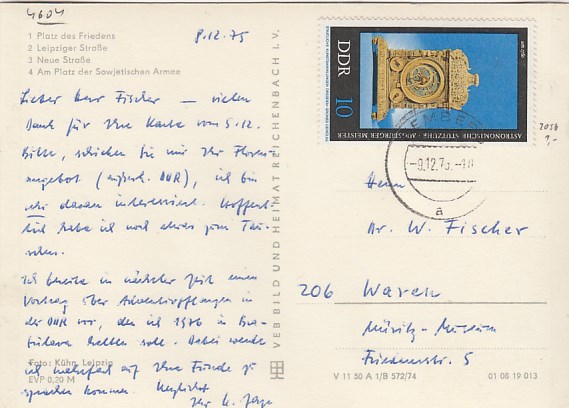 4604
8.12.75
1 Platz des Friedens
2 Leipziger Straße
3 Neue Straße
4 Am Platz der Sowjetischen Armee
Lieber Herr Fischer — vielen
Dank für Ihre Karte vom 5.12.
Bitte, schicken Sie mir Ihr
angebot ( DDR), ich bin
sehr daran interessiert. Hoffent-
lich habe ich noch etwas zum Tau-
schen.
Ich bereite in nächster Zeit einen
Vortrag über Adventivpflanzen in
der DDR vor, den ich 1976 in
halten soll. Dabei werde
ich mehrfach auf Ihre Funde zu
sprechen kommen. Herzlichst
Ihr
Foto: Kühn, Leipzig
EVP 0,20 M
VEB BILD UND HEIMAT REICHENBACH I. V.
DDR
10
ASTRONOMISCHE STUTZUHR · AUGSBURGER MEISTER
-9.12.75
a
Herrn
Dr. W. Fischer
206 Waren
Müritz-Museum
Friedensstr. 5
V 11 50 A 1/B 572/74
01 08 19 013